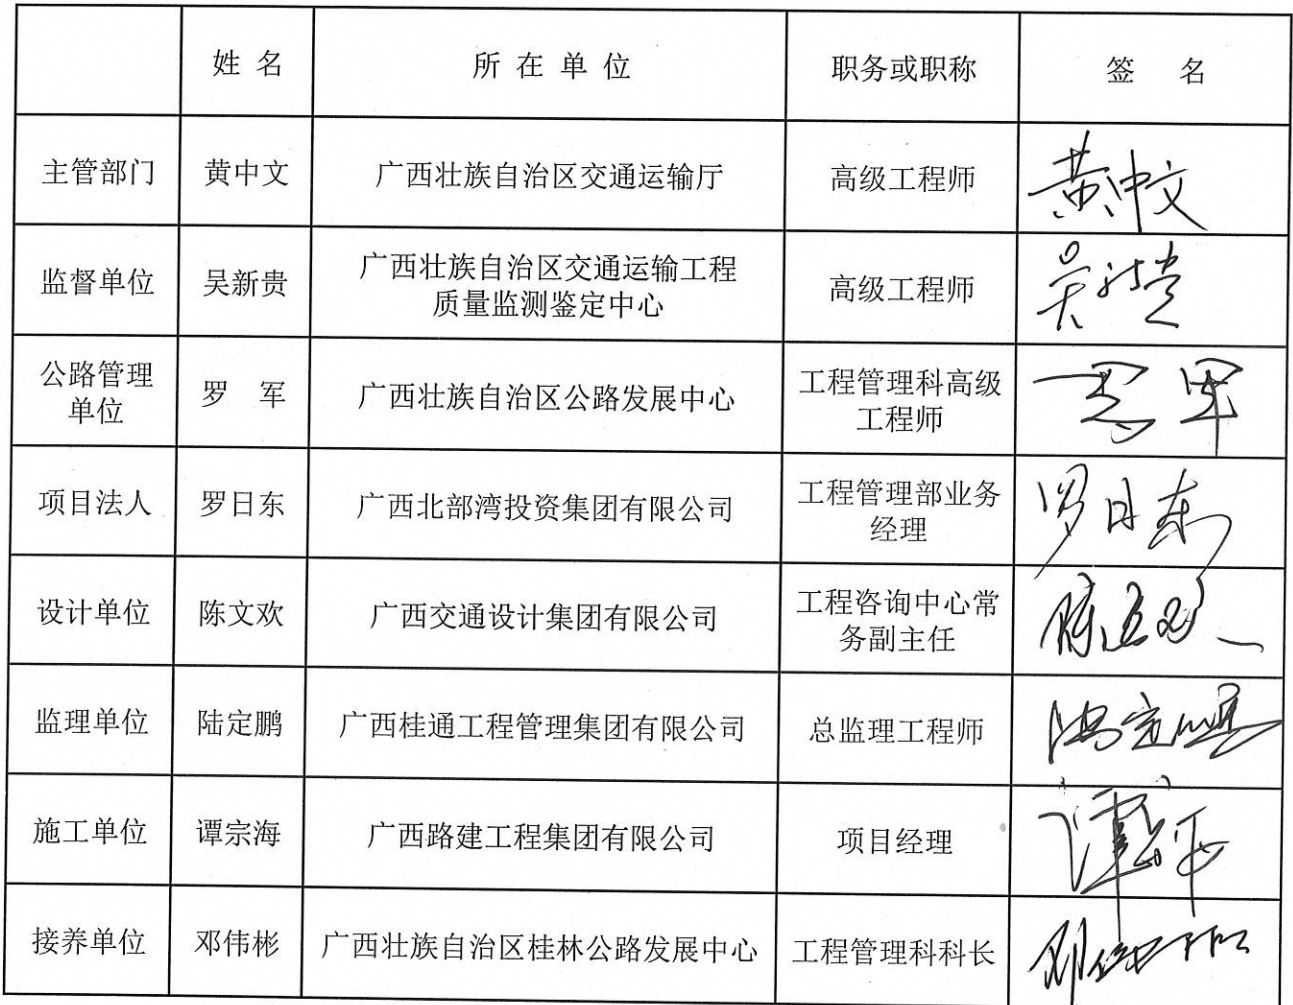 姓 名 所 在 单 位 职务或职称 签 名
主管部门 黄中文 广西壮族自治区交通运输厅 高级工程师 黄中文
监督单位 吴新贵 广西壮族自治区交通运输工程
质量监测鉴定中心 高级工程师 吴新贵
公路管理
单位 罗 军 广西壮族自治区公路发展中心 工程管理科高级
工程师 罗军
项目法人 罗日东 广西北部湾投资集团有限公司 工程管理部业务
经理 罗日东
设计单位 陈文欢 广西交通设计集团有限公司 工程咨询中心常
务副主任
监理单位 陆定鹏 广西桂通工程管理集团有限公司 总监理工程师
施工单位 谭宗海 广西路建工程集团有限公司 项目经理
接养单位 邓伟彬 广西壮族自治区桂林公路发展中心 工程管理科科长